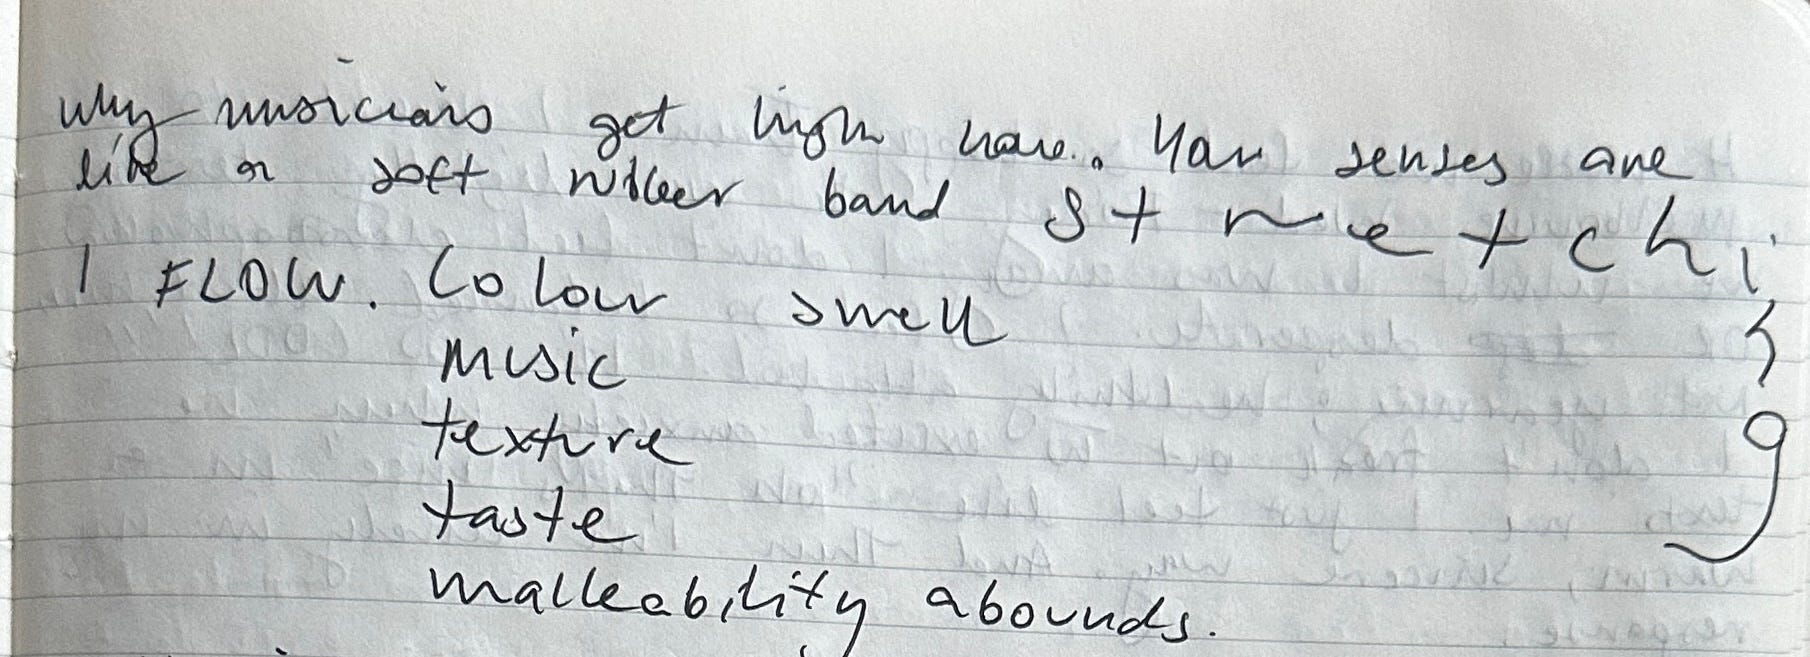 why musicians get high now. Your senses are
like a soft rubber band s t r e t c h i
n
g
I FLOW. Colour smell
music
texture
taste
malleability abounds.